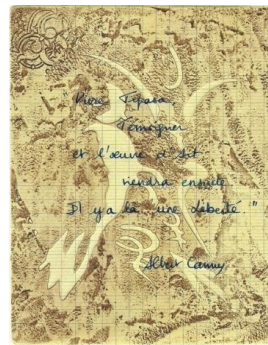 Vivre Tipasa,
Témoigner
et l'œuvre d'art
viendra ensuite
Il y a là une liberté."
Albert Camus